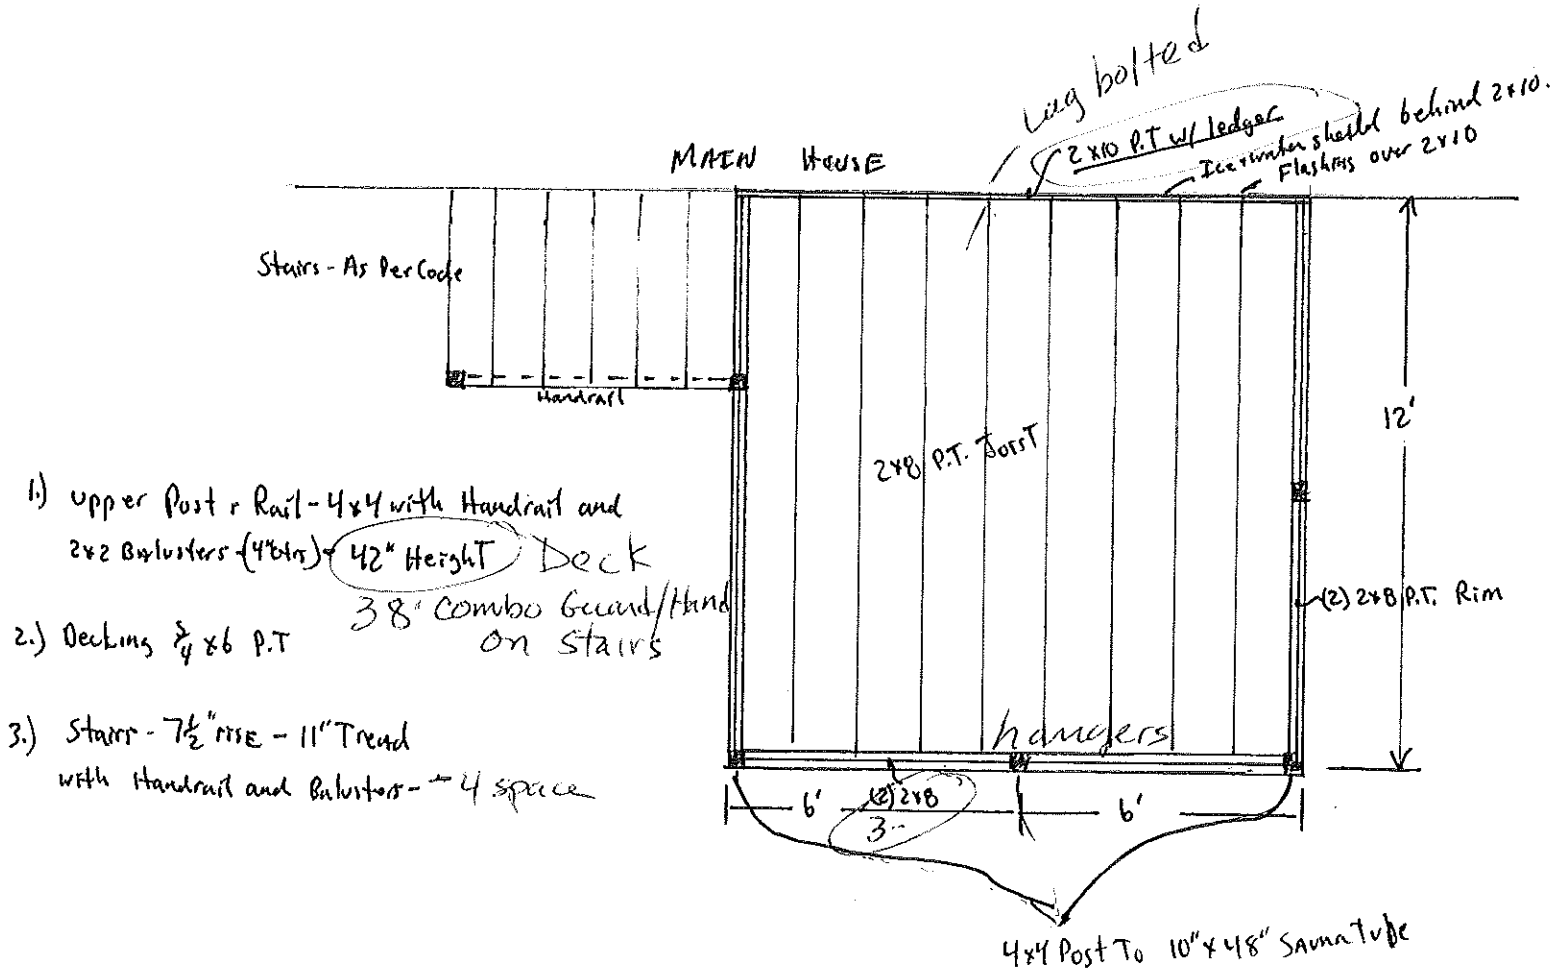 Lag bolted
2x10 P.T w/ ledger
Ice + water sheild behind 2x10.
Flashing over 2x10
MAIN HOUSE
Stairs - As Per Code
Handrail
12'
2x8 P.T. JoisT
1.) upper Post + Rail - 4x4 with Handrail and
2x2 Balusters - (4" ctrs) - 42" HeighT Deck
38" Combo Guard/Hand
on Stairs
(2) 2x8 P.T. Rim
2.) Decking 5/4 x6 P.T
3.) Stairs - 7½" rise - 11" Tread
with Handrail and Balusters - 4 space
hangers
6' (2) 2x8 6'
3--
4x4 Post To 10" x 48" SAunaTube